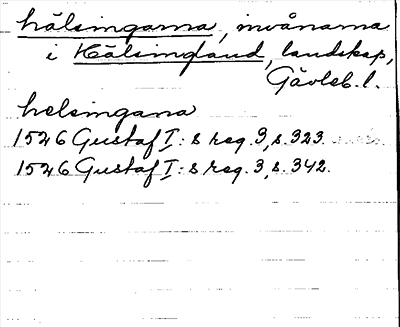 hälsingarna, invånarna
i Hälsingland, landskap,
Gävleb. l.
helsingana
1526 Gustaf I:s reg. 3, s. 323.
1526 Gustaf I:s reg. 3, s. 342.